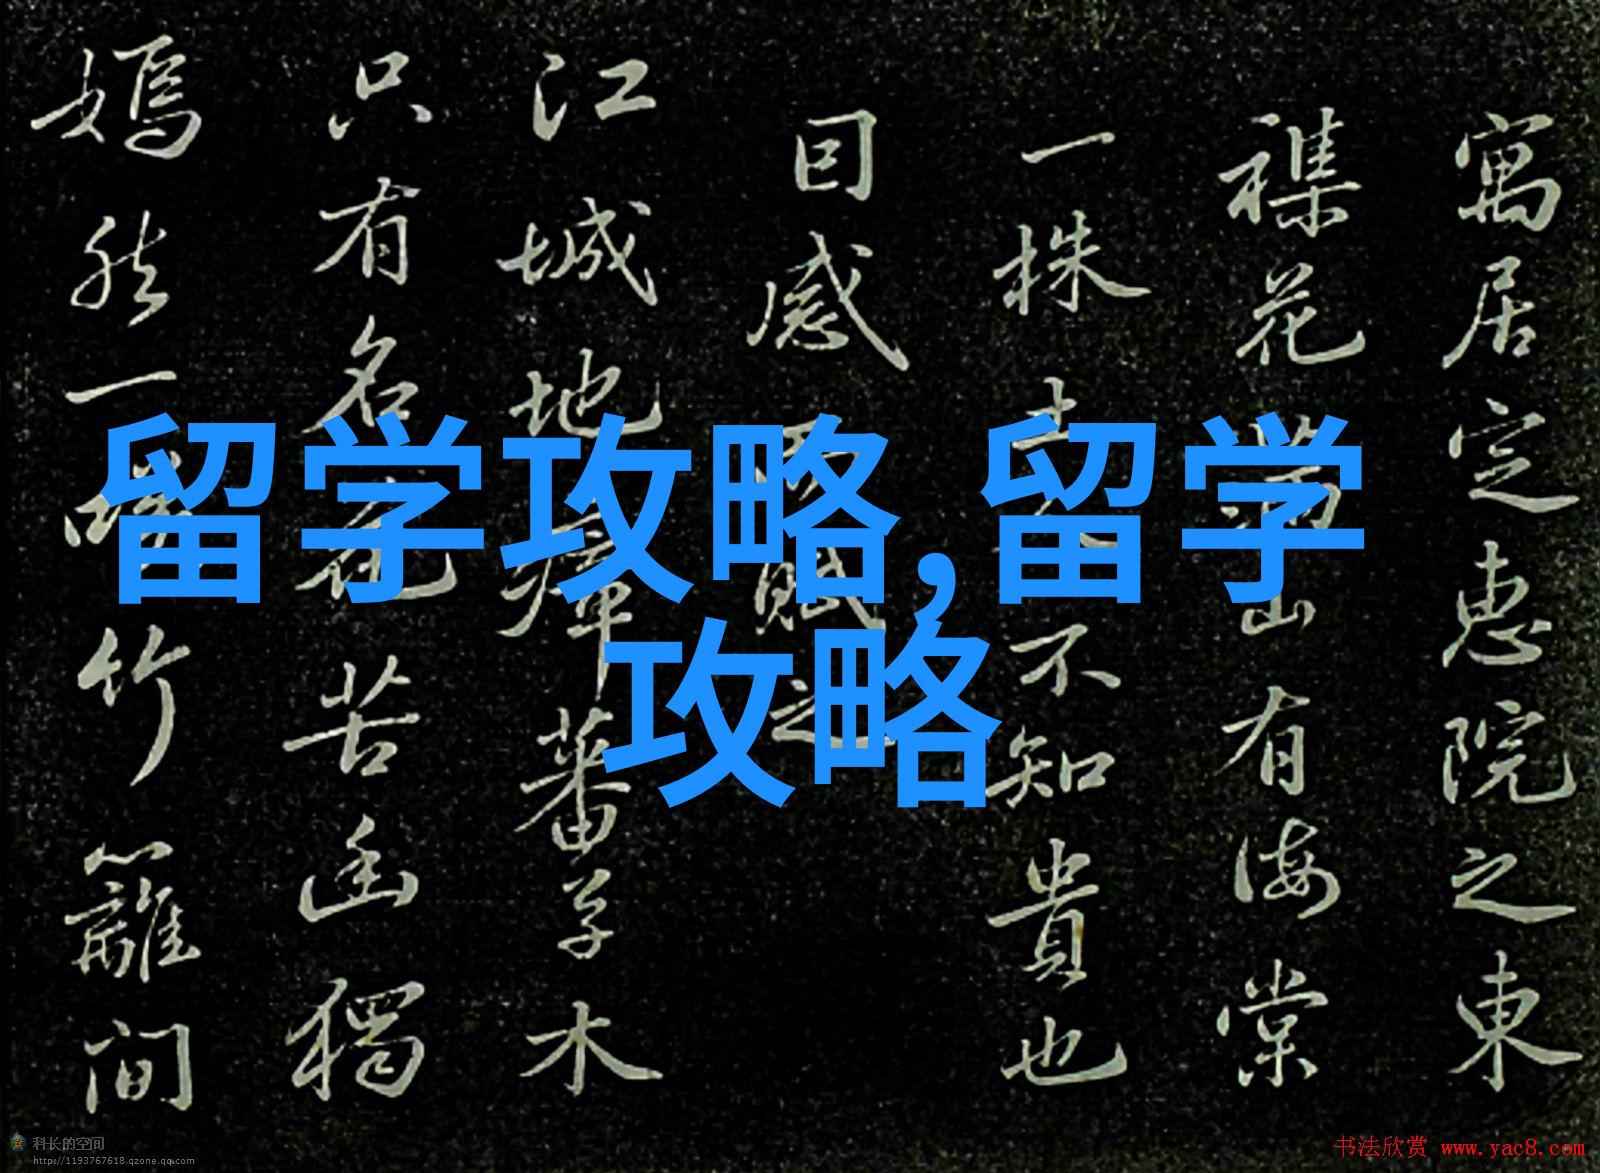 寓居定惠院之東
襍花滿山有海棠
一株土人不知貴也
囙感而賦之
江城地瘴蕃草木
只有名花苦幽獨
嫣然一咲竹籬間
留学攻略,留学
攻略
科长的空间
http://1193767618.qzone.qq.com
书法欣赏 www.yac8.com